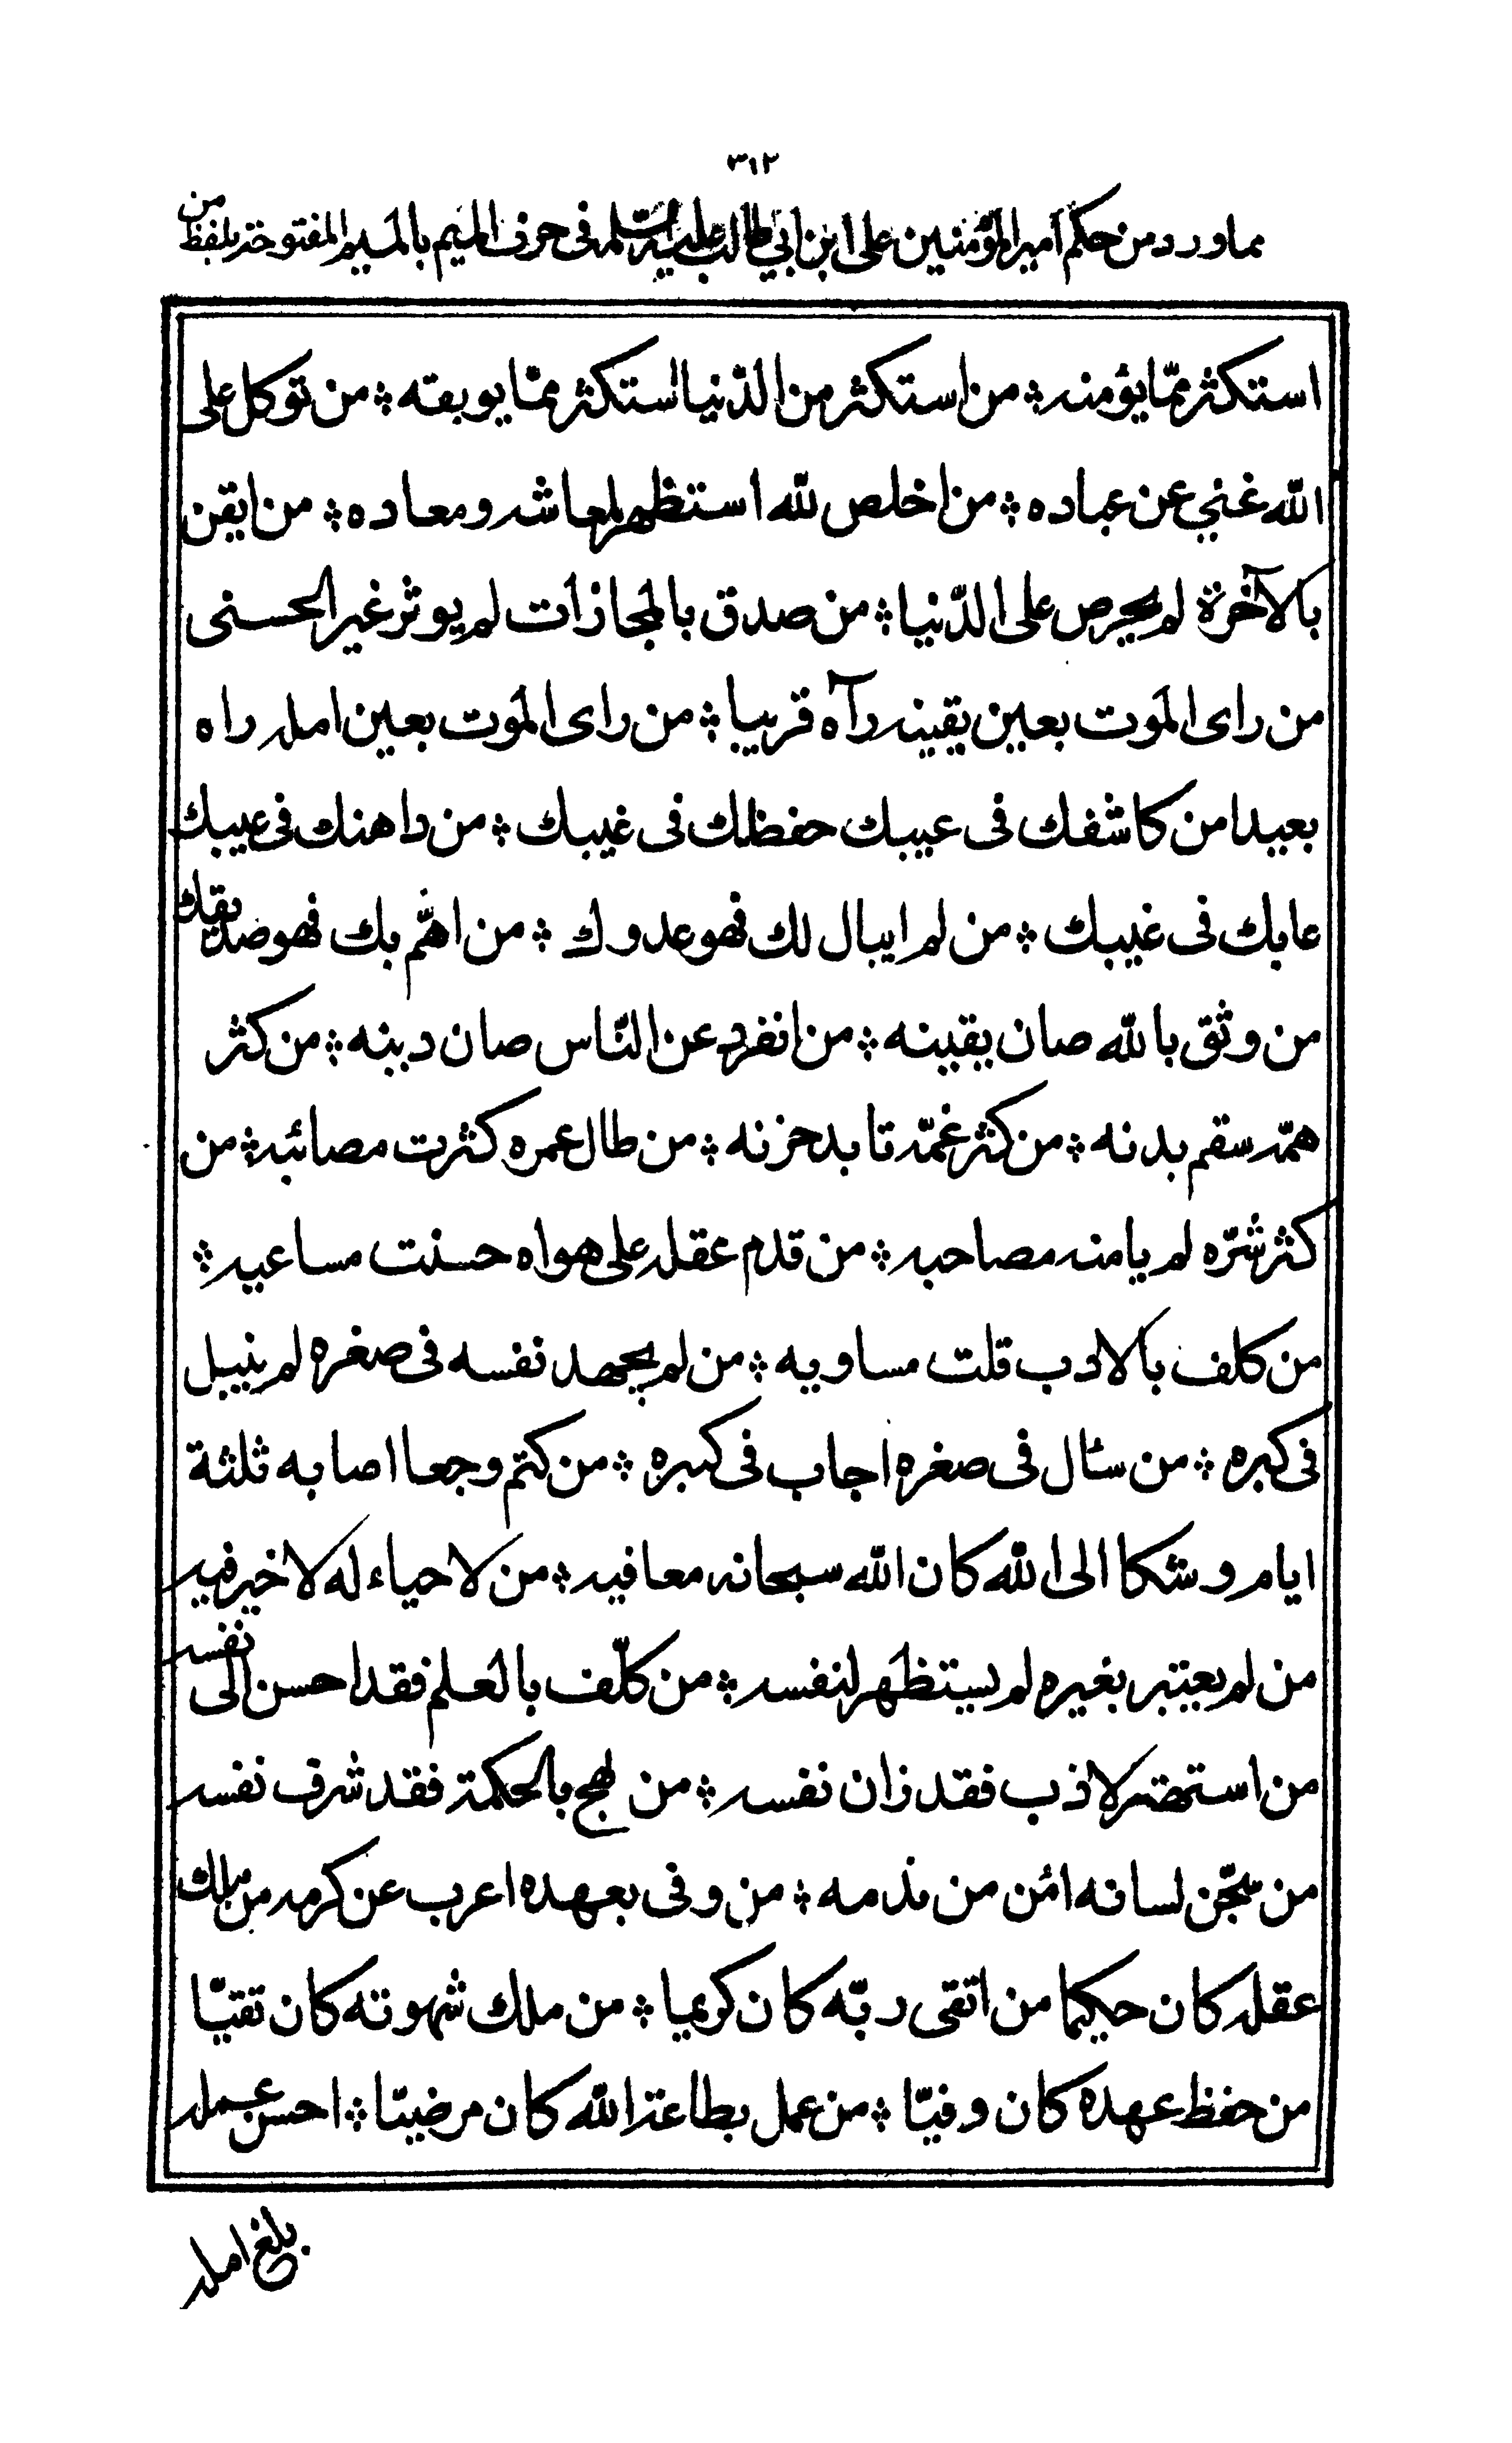 ٣١٢
مما ورد من حكم امير المؤمنين على ابن ابي طالب عليه السلام فى حرف الميم بالميم المفتوحة بلفظ من
استكثر ممّا يؤمنه ؞ من استكثر من الدّنيا استكثر ممّا يوبقه ؞ من توكل على
الله غني عن عباده ؞ من اخلص لله استظهر لمعاشه ومعاده ؞ من ايقن
بالآخرة لم يحرص على الدّنيا ؞ من صدق بالمجازات لم يوثر غير الحسنى
من راى الموت بعين يقينه رآه قريبا ؞ من راى الموت بعين امله راه
بعيدا من كاشفك فى عيبك حفظك فى غيبك ؞ من داهنك فى عيبك
عابك فى غيبك ؞ من لم ايبال لك فهو عدوك ؞ من اهّم بك فهو صديقك
من وثق بالله صان يقينه ؞ من انفرد عن النّاس صان دينه ؞ من كثر
همّه سقم بدنه ؞ من كثر غمّه تابد حزنه ؞ من طال عمره كثرت مصائبه ؞ من
كثر شرّه لم يامنه مصاحبه ؞ من قدم عقله على هواه حسنت مساعيه ؞
من كلف بالادب قلت مساويه ؞ من لم يجهد نفسه فى صغره لم ينيبل
فى كبره ؞ من سئال فى صغره اجاب فى كبره ؞ من كتم وجعا اصابه ثلثة
ايام وشكا الى الله كان الله سبحانه معافيه ؞ من لا حياء له لا خير فيه
من لم يعتبر بغيره لم يستظهر لنفسه ؞ من كلّف بالعلم فقد احسن الى نفسه
من لاذب فقد زان نفسه ؞ من لهج بالحكمة فقد شرف نفسه
من سجّن لسانه امن من نذمه ؞ من وفى بعهده اعرب عن كرمه من ملك
عقله كان حكيما من اتقى ربّه كان كريما ؞ من ملك شهوته كان تقيّا
من حفظ عهده كان وفيّا ؞ من عمل بطاعة الله كان مرضيّا ؞ احسن عمله
بلغ امله